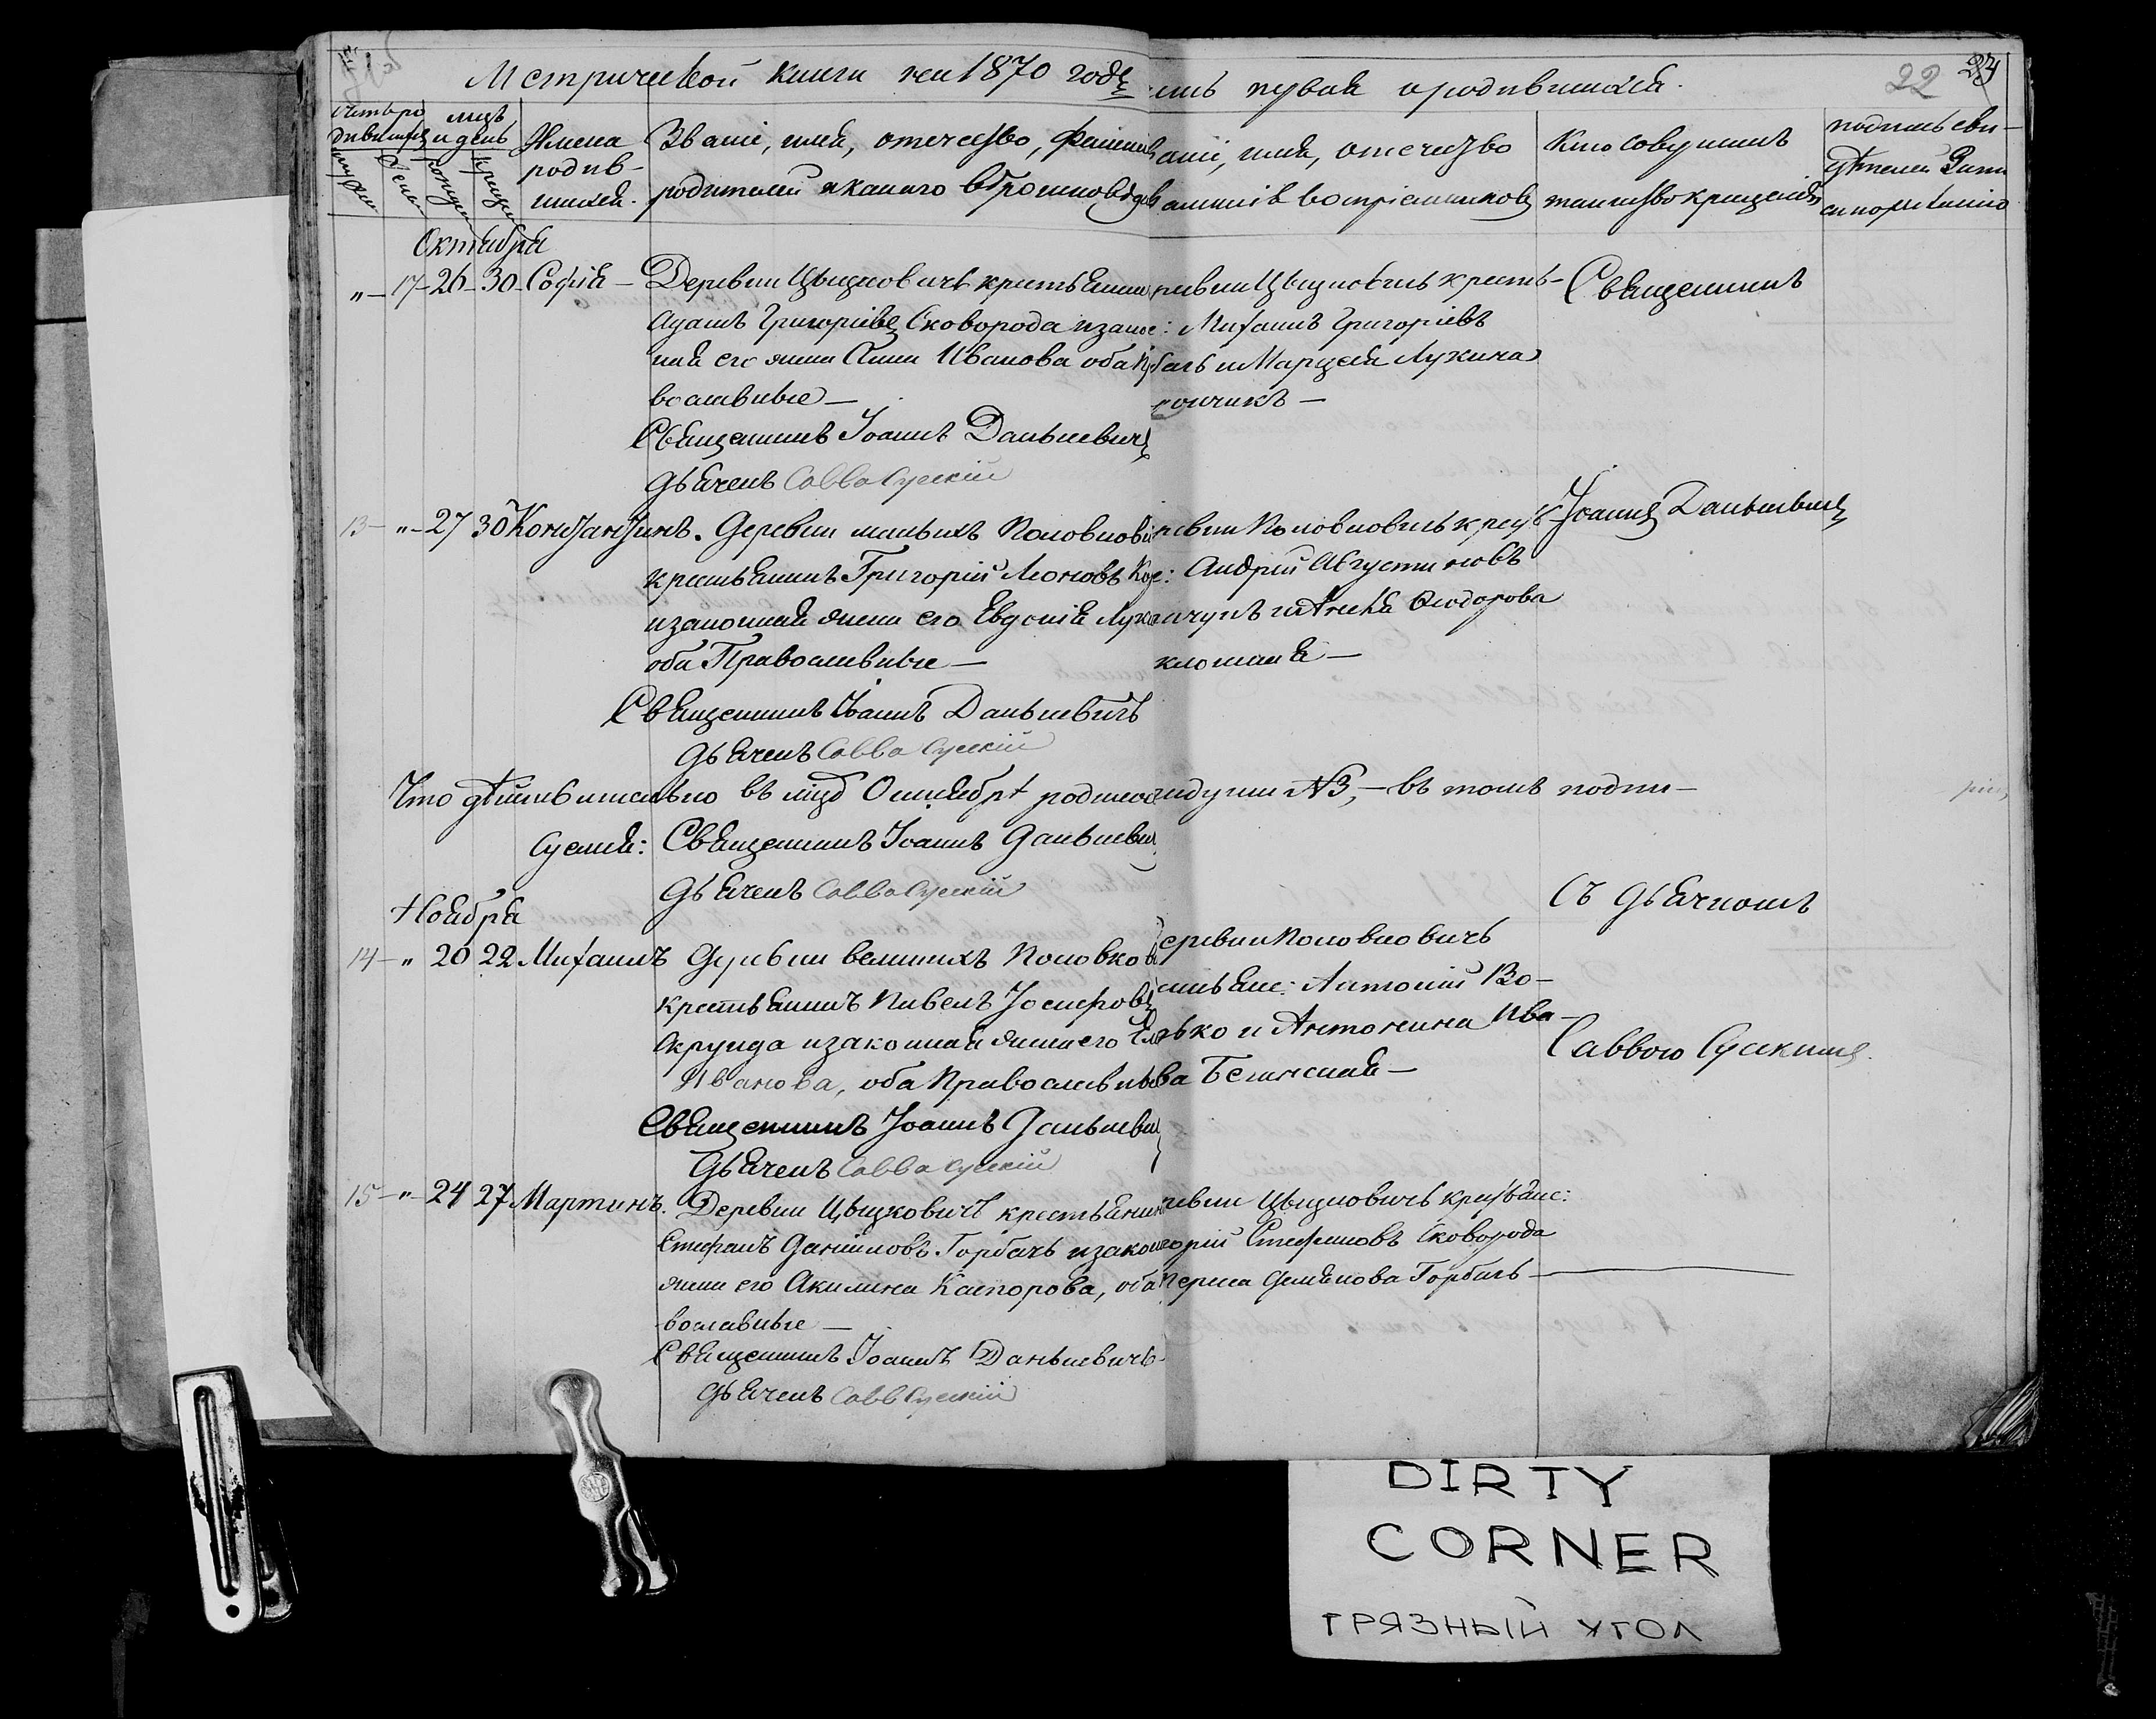 Метрической книги на 1870 годъ
часть первая о родившихся.
22 24
Счетъ родившихся
мцъ и день
Имена родившихся.
Званіе, имя, отечество, фамилія
родителей и какого вѣроисповѣд
аніе, имя, отечество
фамилія воспріемниковъ
Кто совершалъ
таинство крещенія
подпись сви-
дѣтелей записи
по желанію
Октября
"-17-26-30-Софія-
Деревни Цыцковичъ крестьянинъ
Адамъ Григоріевъ Сковорода и закон
ная его жена Анна Иванова оба Пр
вославные-
Священникъ Іоаннъ Даньшевичъ
дьячекъ Савва Сускій
ревни Цыцковичъ кресть-
: Михаилъ Григоріевъ
бачь и Марцеля Лукина
рончикъ-
Священникъ
13-"-27 30 Константинъ.
Деревни малыхъ Половкови
крестьянинъ Григорій Леоновъ
и законная жена его Евдокія Лук
оба Православные-
Священникъ Іоаннъ Даньшевичъ
дьячекъ Савва Сускій
ревни Половковичъ крест
: Андрій Августиновъ
и Анна Ѳеодорова
Іоаннъ Даньшевичъ
Что дѣйствительно въ мцѣ Октябрѣ родилось
душъ №3,-въ томъ подпи-
суемся: Священникъ Іоаннъ Даньшевич
дьячекъ Савва Сускій
Съ дьячкомъ
Ноября
14-" 20 22 Михаилъ
Деревни великихъ Половков
крестьянинъ Павелъ Іосифовъ
Скруида и законная жена его Ел
Иванова, оба Православные
Священникъ Іоаннъ Даньшевич
Дьячекъ Савва Сускій
еревни Половковичъ
стьяне: Антоній Во-
ько и Антонина Ива-
ва Белинская-
Саввою Сускимъ.
15-"-24 27 Мартинъ.
Деревни Цыцковичъ крестьянин
Стефанъ Даниловъ Горбачь и закон
жена его Акилина Каспорова, оба
вославные-
Священникъ Іоаннъ Даньшевичъ-
дьячекъ Савв Сускій
ревни Цыцковичъ крестьяне:
горій Стефановъ Сковорода
Демьянова Горбачь-
DIRTY
CORNER
ГРЯЗНЫЙ УГОЛ